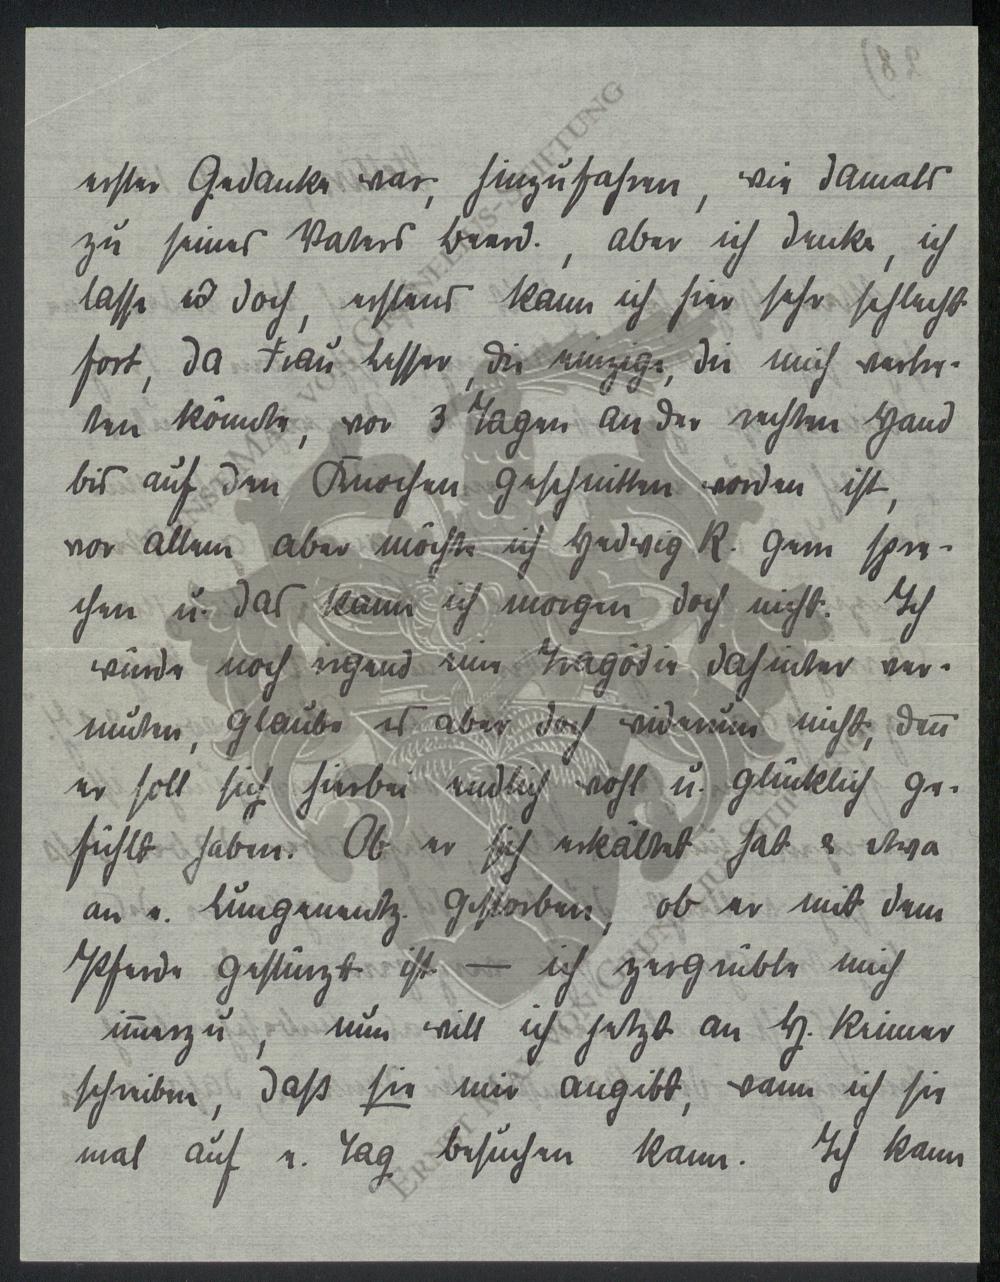 erster Gedanke war, hinzufahren, wie damals
zu seines Vaters Beerd., aber ich denke, ich
lasse es doch, erstens kann ich hier sehr schlecht
fort, da Frau Lesser, die einzige, die mich vertre-
ten könnte, vor 3 Tagen an der rechten Hand
bis auf den Knochen geschnitten worden ist,
vor allem aber möchte ich Hedwig R. gern spre-
chen u. das kann ich morgen doch nicht. Ich
würde noch irgend eine Tragödie dahinter ver-
muten, glaube es aber doch widerum nicht, den̄
er soll sich hierbei endlich wohl u. glücklich ge-
fühlt haben. Ob er sich erkältet hat & etwa
an e. Lungenentz. gestorben, ob er mit dem
Pferde gestürzt ist — ich zergrüble mich
im̄erzu, nun will ich jetzt an H. Reimer
schreiben, daß sie mir angibt, wann ich sie
mal auf e. Tag besuchen kann. Ich kann